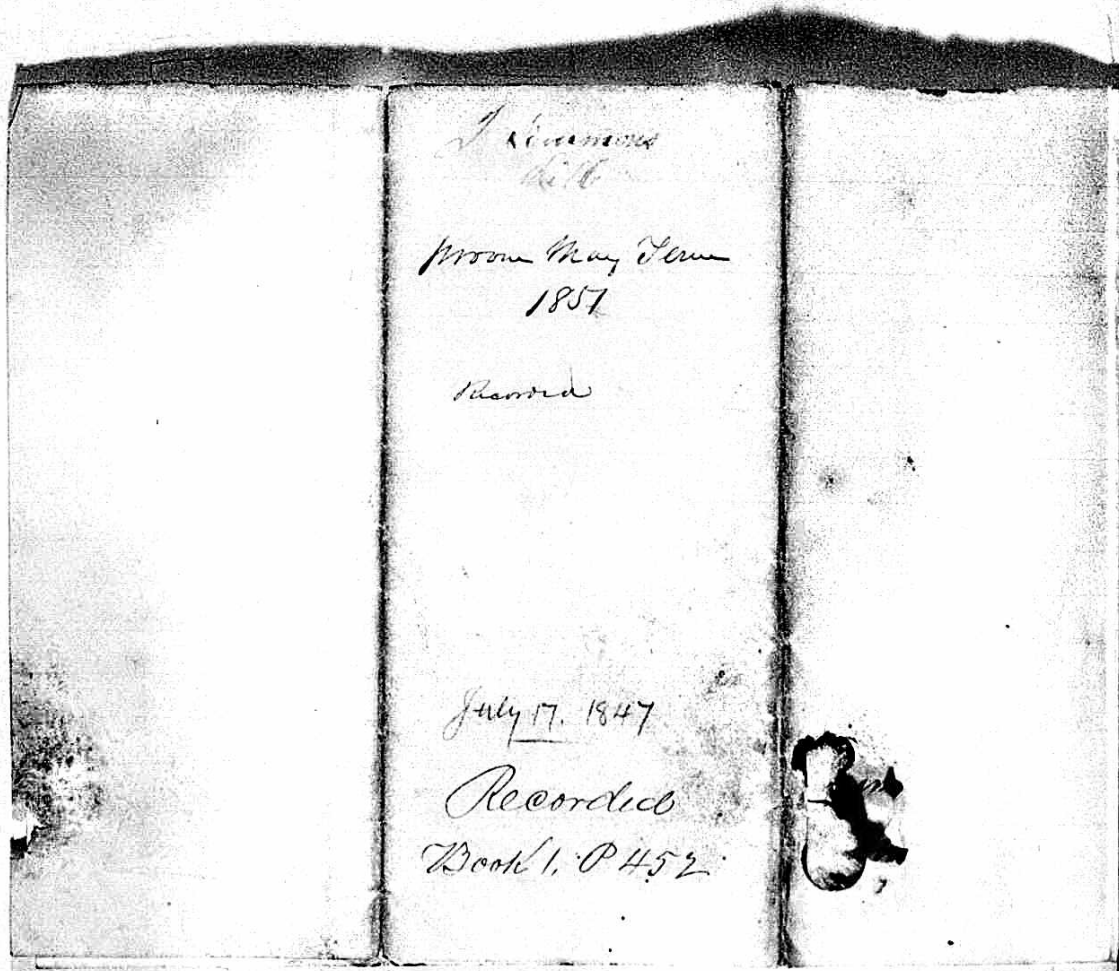 Simmons
Will
proven May Term
1851
Recorded
July 17. 1847
Recorded
Book 1. P 452